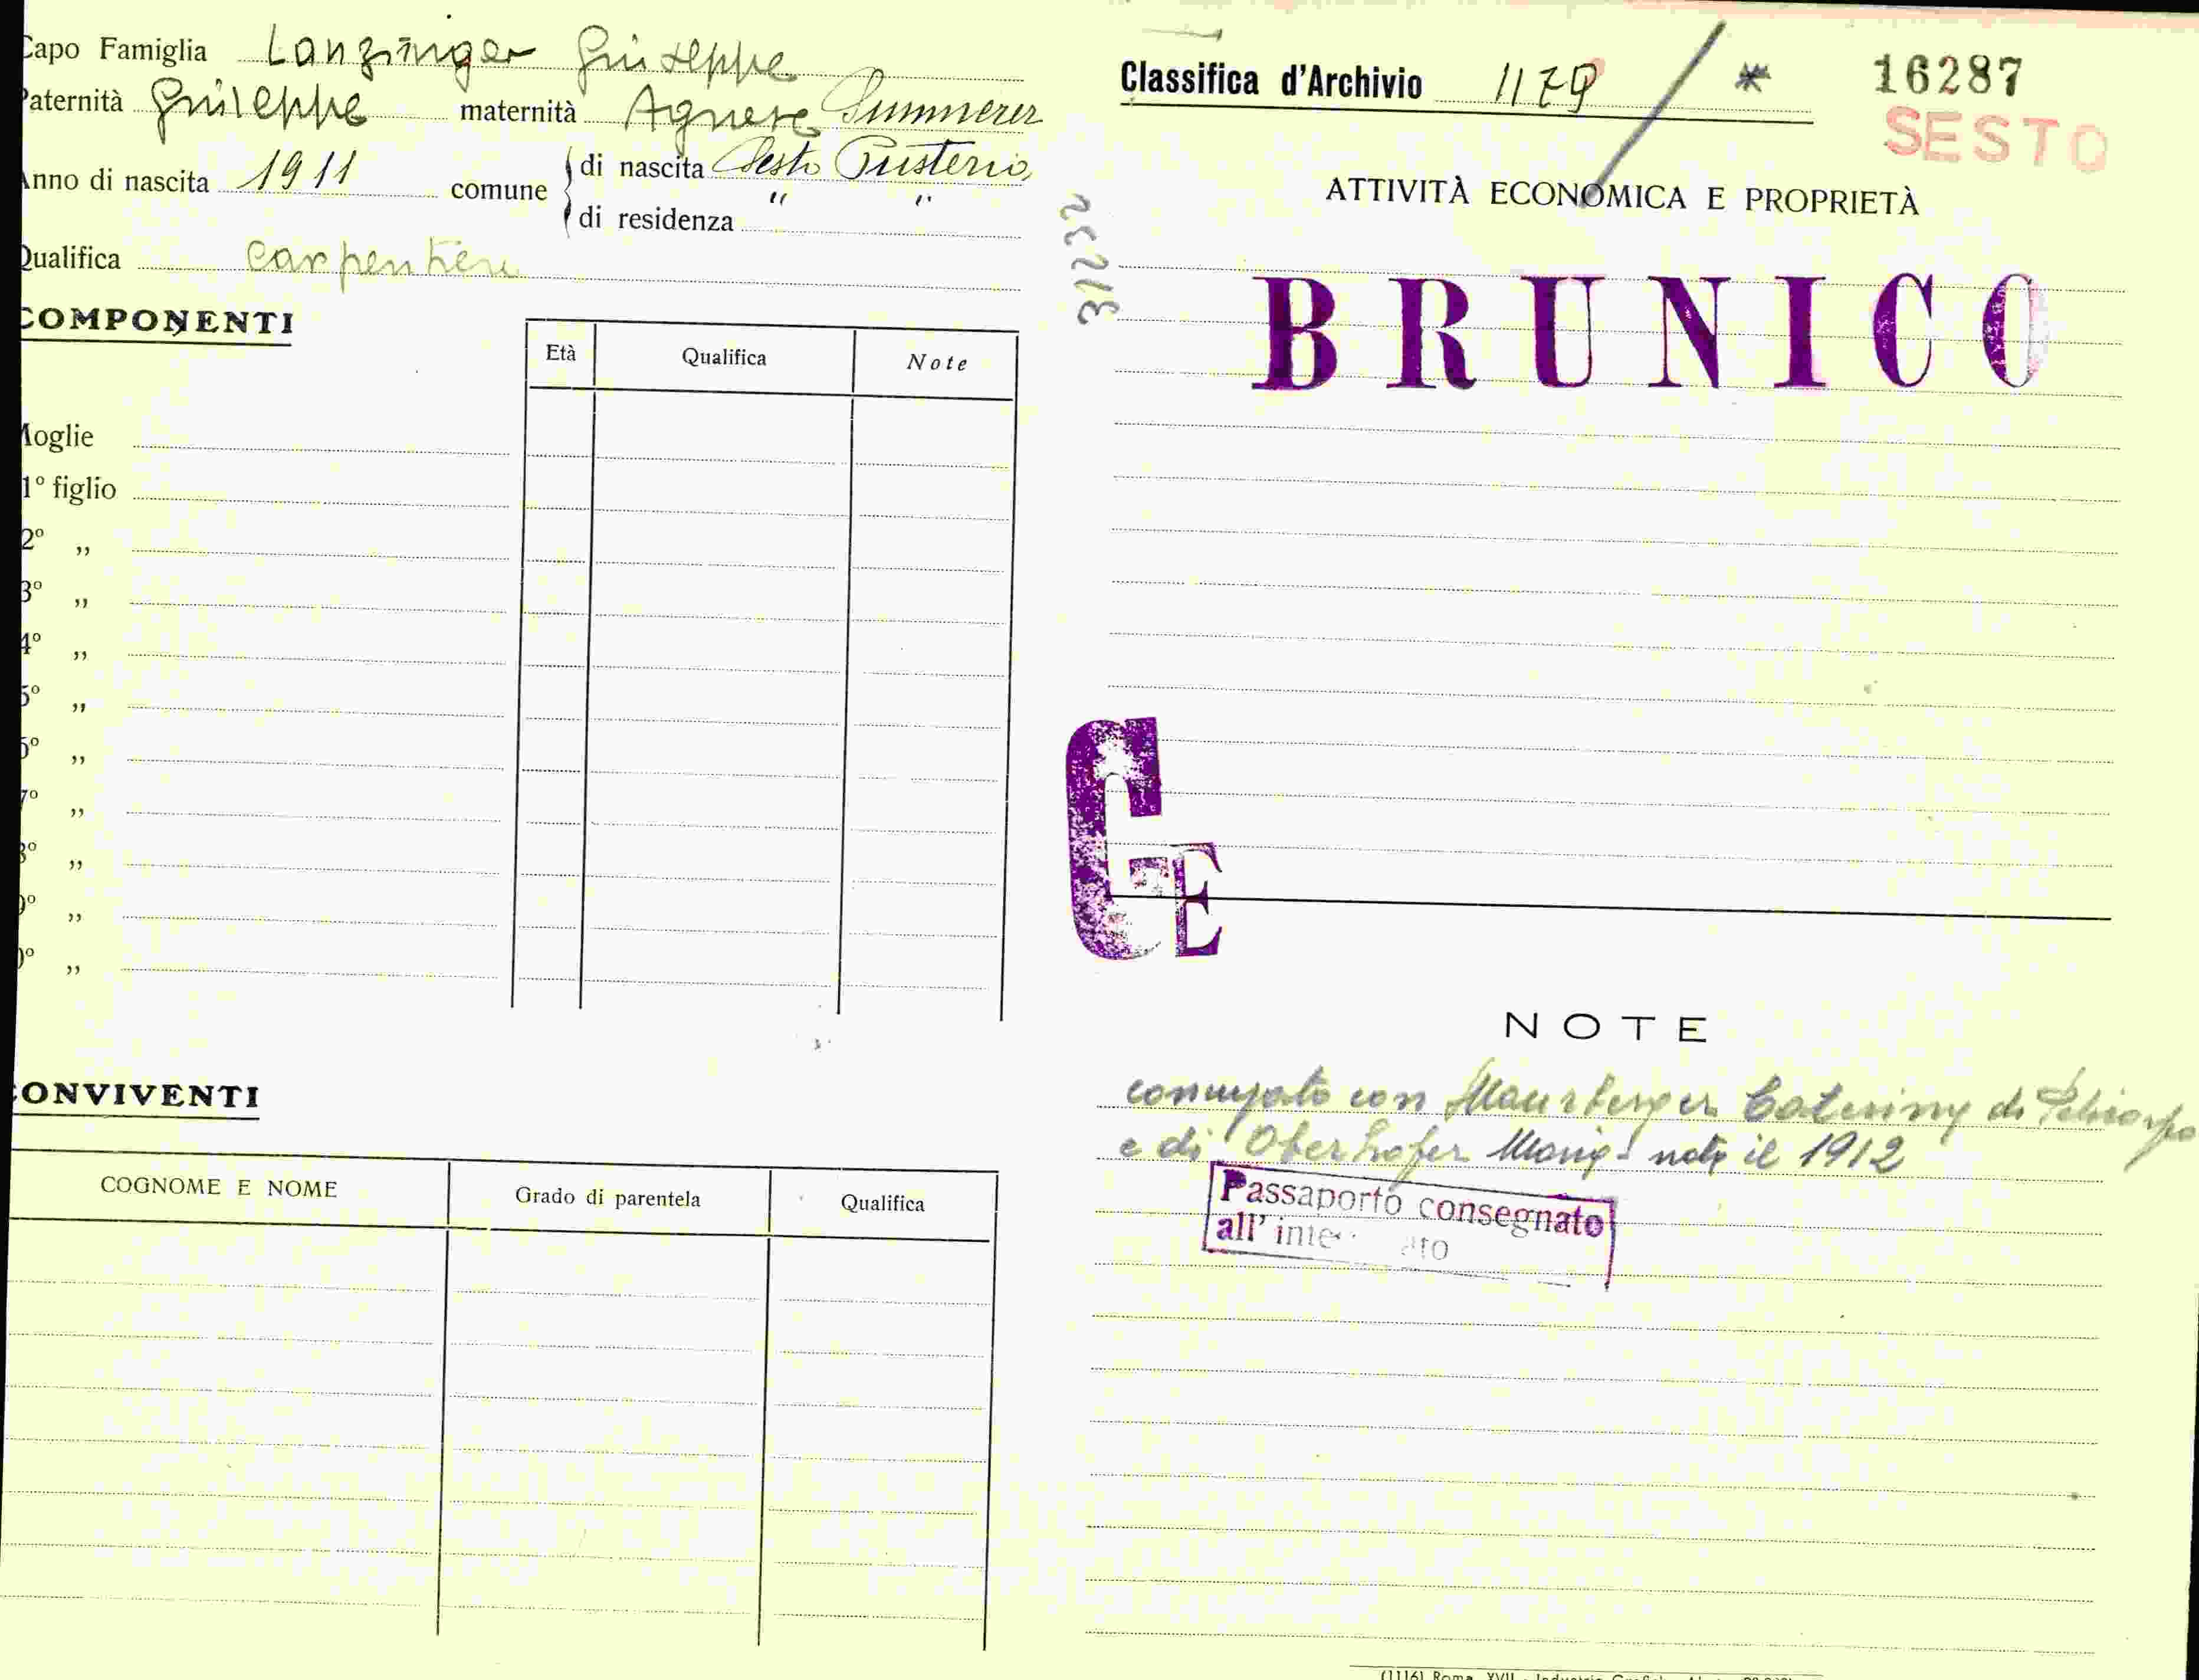 Capo Famiglia Lanzinger Giuseppe
Paternità Giuseppe maternità Agnese Summerer
Anno di nascita 1911 comune di nascita Sesto Pusteria
di residenza " "
Qualifica carpentiere
COMPONENTI
Età Qualifica Note
Moglie
1º figlio
2º „
3º „
4º „
5º „
6º „
7º „
8º „
9º „
0º „
CONVIVENTI
COGNOME E NOME Grado di parentela Qualifica
Classifica d'Archivio 1179 / * 16287
SESTO
ATTIVITÀ ECONOMICA E PROPRIETÀ
BRUNICO
CE
NOTE
coniugato con Caterina di
e di Oberhofer Maria nata il 1912
Passaporto consegnato
all'
(1116) Roma, XVII - Industria